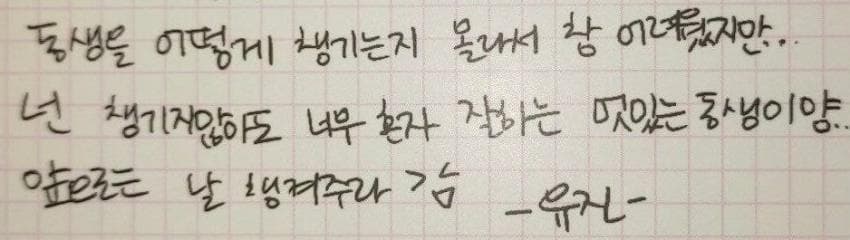 동생을 어떻게 챙기는지 몰라서 참 어려웠지만..
넌 챙기지않아도 너무 혼자 잘하는 멋있는 동생이양..
앞으로는 날 챙겨주라 그냥
-유진-